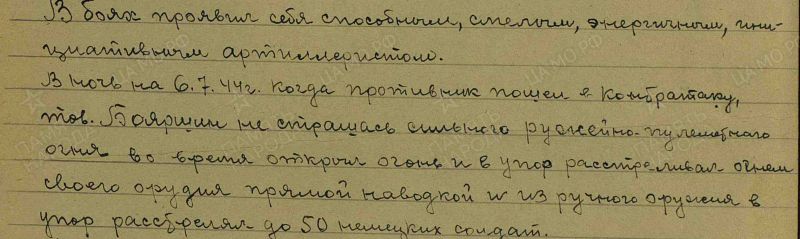 В боях проявил себя способным, смелым, энергичным, ини-
циативным артиллеристом.
В ночь на 6.7.44г. когда противник пошел в контратаку,
тов. Бояршин не страшась сильного ружейно-пулеметного
огня во время открыл огонь и в упор расстреливал огнем
своего орудия прямой наводкой и из ручного оружия в
упор расстрелял до 50 немецких солдат.